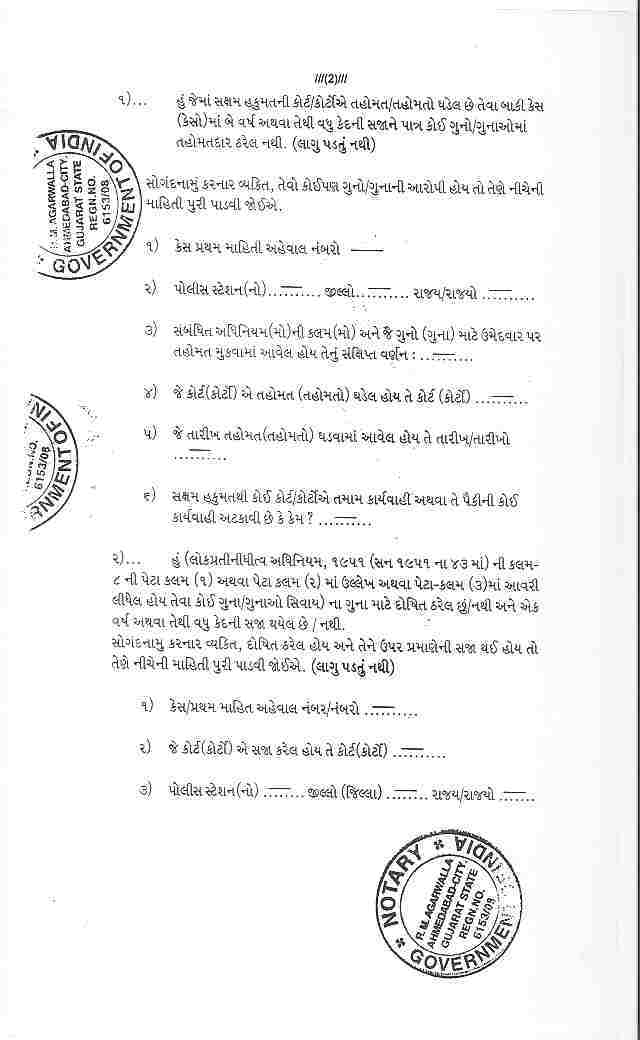 ///(2)///
૧)... હું જેમાં સક્ષમ હકુમતની કોર્ટ/કોર્ટોએ તહોમત/તહોમતો ઘડેલ છે તેવા બાકી કેસ
(કેસો)માં બે વર્ષ અથવા તેથી વધુ કેદની સજાને પાત્ર કોઈ ગુનો/ગુનાઓમાં
તહોમતદાર ઠરેલ નથી. (લાગુ પડતું નથી)
GOVERNMENT OF INDIA
R. M. AGARWALLA
AHMEDABAD-CITY.
GUJARAT STATE
REGN.NO.
6153/08
સોગંદનામું કરનાર વ્યકિત, તેવો કોઈપણ ગુનો/ગુનાની આરોપી હોય તો તેણે નીચેની
માહિતી પુરી પાડવી જોઈએ.
૧) કેસ પ્રથમ માહિતી અહેવાલ નંબરો ——
૨) પોલીસ સ્ટેશન(નો).......... જીલ્લો.......... રાજય/રાજયો ..........
૩) સંબંધિત અધિનિયમ(મો)ની કલમ(મો) અને જે ગુનો (ગુના) માટે ઉમેદવાર પર
તહોમત મુકવામાં આવેલ હોય તેનું સંક્ષિપ્ત વર્ણન : ..........
૪) જે કોર્ટ(કોર્ટો) એ તહોમત (તહોમતો) ઘડેલ હોય તે કોર્ટ (કોર્ટો) ..........
૫) જે તારીખ તહોમત(તહોમતો) ઘડવામાં આવેલ હોય તે તારીખ/તારીખો
..........
REGN.NO.
6153/08
૬) સક્ષમ હકુમતથી કોઈ કોર્ટ/કોર્ટોએ તમામ કાર્યવાહી અથવા તે પૈકીની કોઈ
કાર્યવાહી અટકાવી છે કે કેમ ? ..........
૨)... હું (લોકપ્રતીનીધીત્વ અધિનિયમ, ૧૯૫૧ (સન ૧૯૫૧ ના ૪૩ માં) ની કલમ-
૮ ની પેટા કલમ (૧) અથવા પેટા કલમ (૨) માં ઉલ્લેખ અથવા પેટા-કલમ (૩)માં આવરી
લીધેલ હોય તેવા કોઈ ગુના/ગુનાઓ સિવાય) ના ગુના માટે દોષિત ઠરેલ છું/નથી અને એક
વર્ષ અથવા તેથી વધુ કેદની સજા થયેલ છે / નથી.
સોગંદનામુ કરનાર વ્યકિત, દોષિત ઠરેલ હોય અને તેને ઉપર પ્રમાણેની સજા થઈ હોય તો
તેણે નીચેની માહિતી પુરી પાડવી જોઈએ. (લાગુ પડતું નથી)
૧) કેસ/પ્રથમ માહિત અહેવાલ નંબર/નંબરો ..........
૨) જે કોર્ટ(કોર્ટો) એ સજા કરેલ હોય તે કોર્ટ(કોર્ટો) ..........
૩) પોલીસ સ્ટેશન(નો) ........ જીલ્લો (જિલ્લા) ........ રાજય/રાજયો .......
NOTARY
GOVERNMENT OF INDIA
R. M. AGARWALLA
AHMEDABAD-CITY.
GUJARAT STATE
REGN.NO.
6153/08